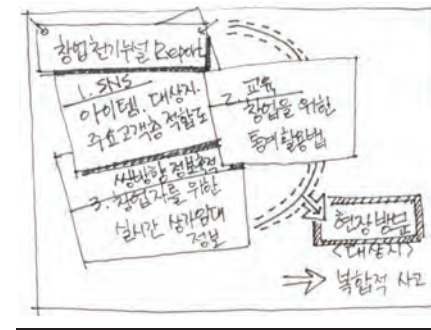 창업천기누설 Report
1. SNS
아이템, 대상지.
주요고객층 적합도
2. 교육
창업을 위한
통계활용법
쌍방향 정보
3. 창업자를 위한
실시간 상가임대
정보
현장방문
<대상지>
⇒ 복합적 사고